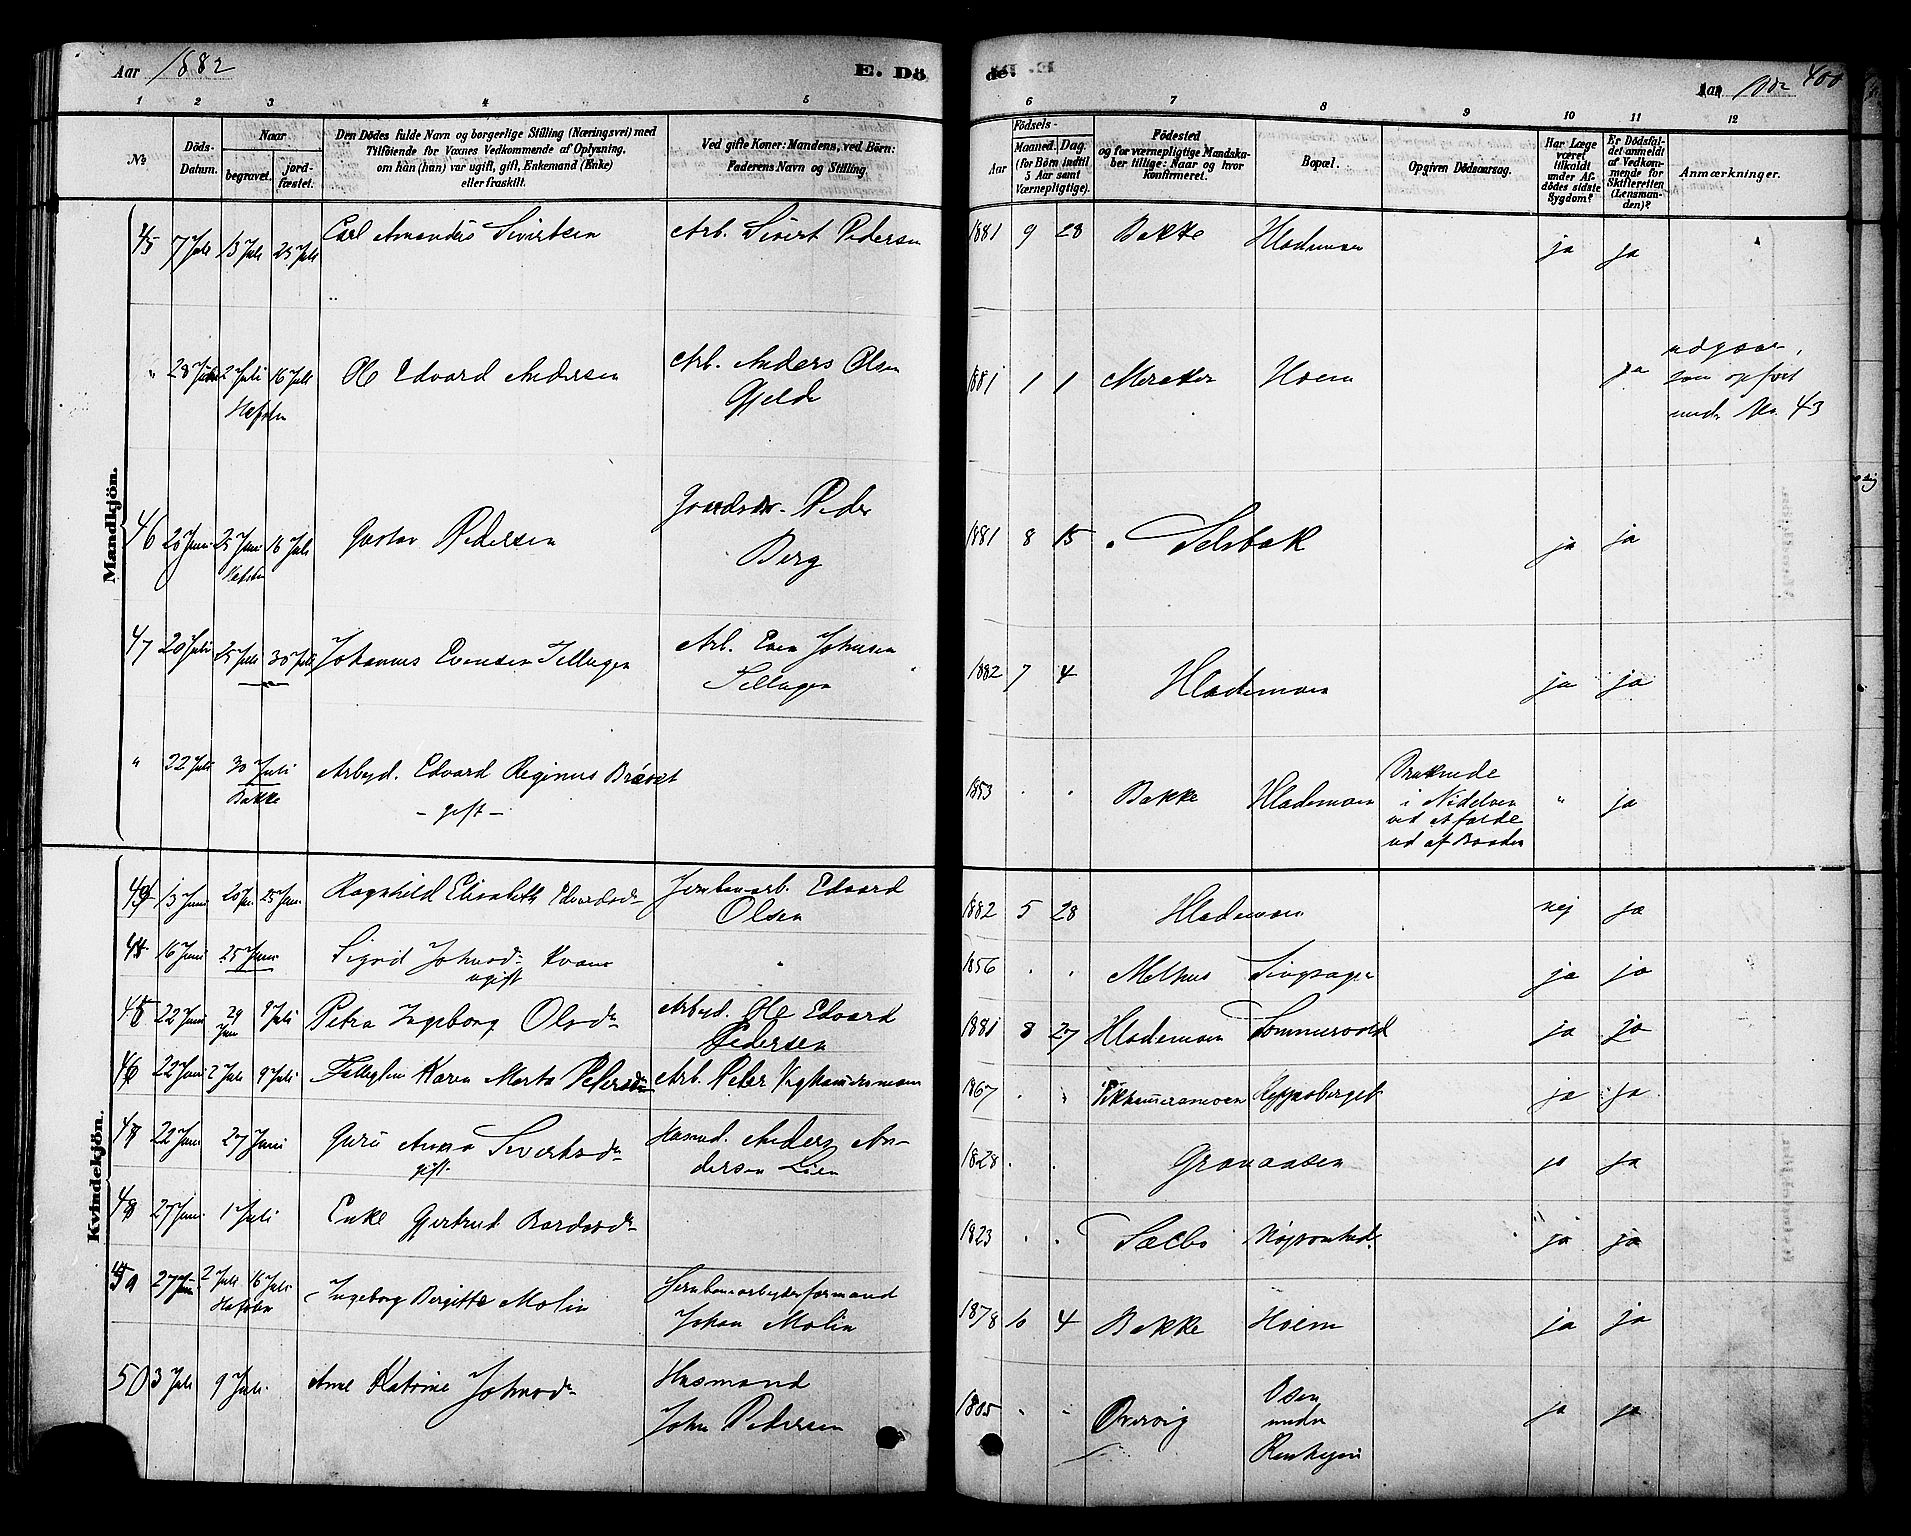 Aar 1882
E. Dö
de. Aar 400
1 2 3 4 5 6 7 8 9 10 11 12
No
Döds-
Datum.
Naar
begravet.
jord-
fæstet.
Den Dödes fulde Navn og borgerlige Stilling (Næringsvei) med
Tilföiende for Voxnes Vedkommende af Oplysning,
om hun (han) var ugift, gift, Enkemand (Enke)
eller fraskilt.
Ved gifte Koner: Mandens, ved Börn:
Faderens Navn og Stilling.
Födsels-
Aar
Maaned. Dag.
(for Börn indtil
5 Aar samt
Værnepligtige).
Födested
og for værnepligtige Mandska-
ber tillige: Naar og hvor
konfirmeret.
Bopæl.
Opgiven Dödsaarsag.
Har Læge
været
tilkaldt
under Af-
dödes sidste
Sygdom?
Er Dödsfal-
det anmeldt
af Vedkom-
mende for
Skifteretten
(Lensman-
den)?
Anmærkninger.
Mandkjön.
45 7 Juli 13 Juli 25 Juli Carl Amandus Sivertsen Arb. Sivert Pedersen 1881 9 28 Bakke Hlademoen ja ja
" 28 Juni 2 Juli 16 Juli Ole Edvard Andersen Arb. Anders Olsen 1881 1 1 Meraker Hoem ja udgaar,
Gjelde som opført
under No. 43
46 20 Juni 25 Juni 16 Juli Gustav Pedersen Peder 1881 8 15 Selsbak ja ja
Berg
47 20 Juli 25 Juli 30 Juli Johannes Evensen Tellugen Arb. Even Johnsen 1882 7 4 Hlademoen ja ja
Tellugen
" 22 Juli 30 Juli Arbejd. Edvard Reginus Brævet 1853 " " Bakke Hlademoen Druknede " ja
Bakke - gift - i Nidelven
ved at falde
ud af Baaden
Kvindekjön.
43 13 Juni 25 Juni Ragnhild Elisabeth Edvardsdr Jernbanearb. Edvard 1882 5 28 Hlademoen nej ja
Olsen
44 16 Juni 25 Juni Sigrid Johnsdr Kvam " 1856 " " Melhus Singsager ja ja
ugift
45 22 Juni 29 Juni 9 Juli Petra Ingeborg Olsdr Arbejd. Ole Edvard 1881 8 27 Hlademoen Sommervold ja ja
Pedersen
46 22 Juni 2 Juli 9 Juli Karen Marta Petersdr Arb. Peter 1867 " " ja ja
47 22 Juni 27 Juni Guru Anna Sivertsdr Husmd. Anders An- 1828 " " Granaasen ja ja
gift dersen Lien
48 27 Juni 1 Juli Enke Gjertrud Bardosdr 1823 " " Sælbo ja ja
49 27 Juni 2 Juli 16 Juli Ingeborg Birgitte Molin Jernbanearbejderformand 1878 10 4 Bakke Hoem ja ja
Johan Molin
50 3 Juli 9 Juli Ane Katrine Johnsdr Husmand 1805 " " Overvig Osen ja ja
John Pedersen under